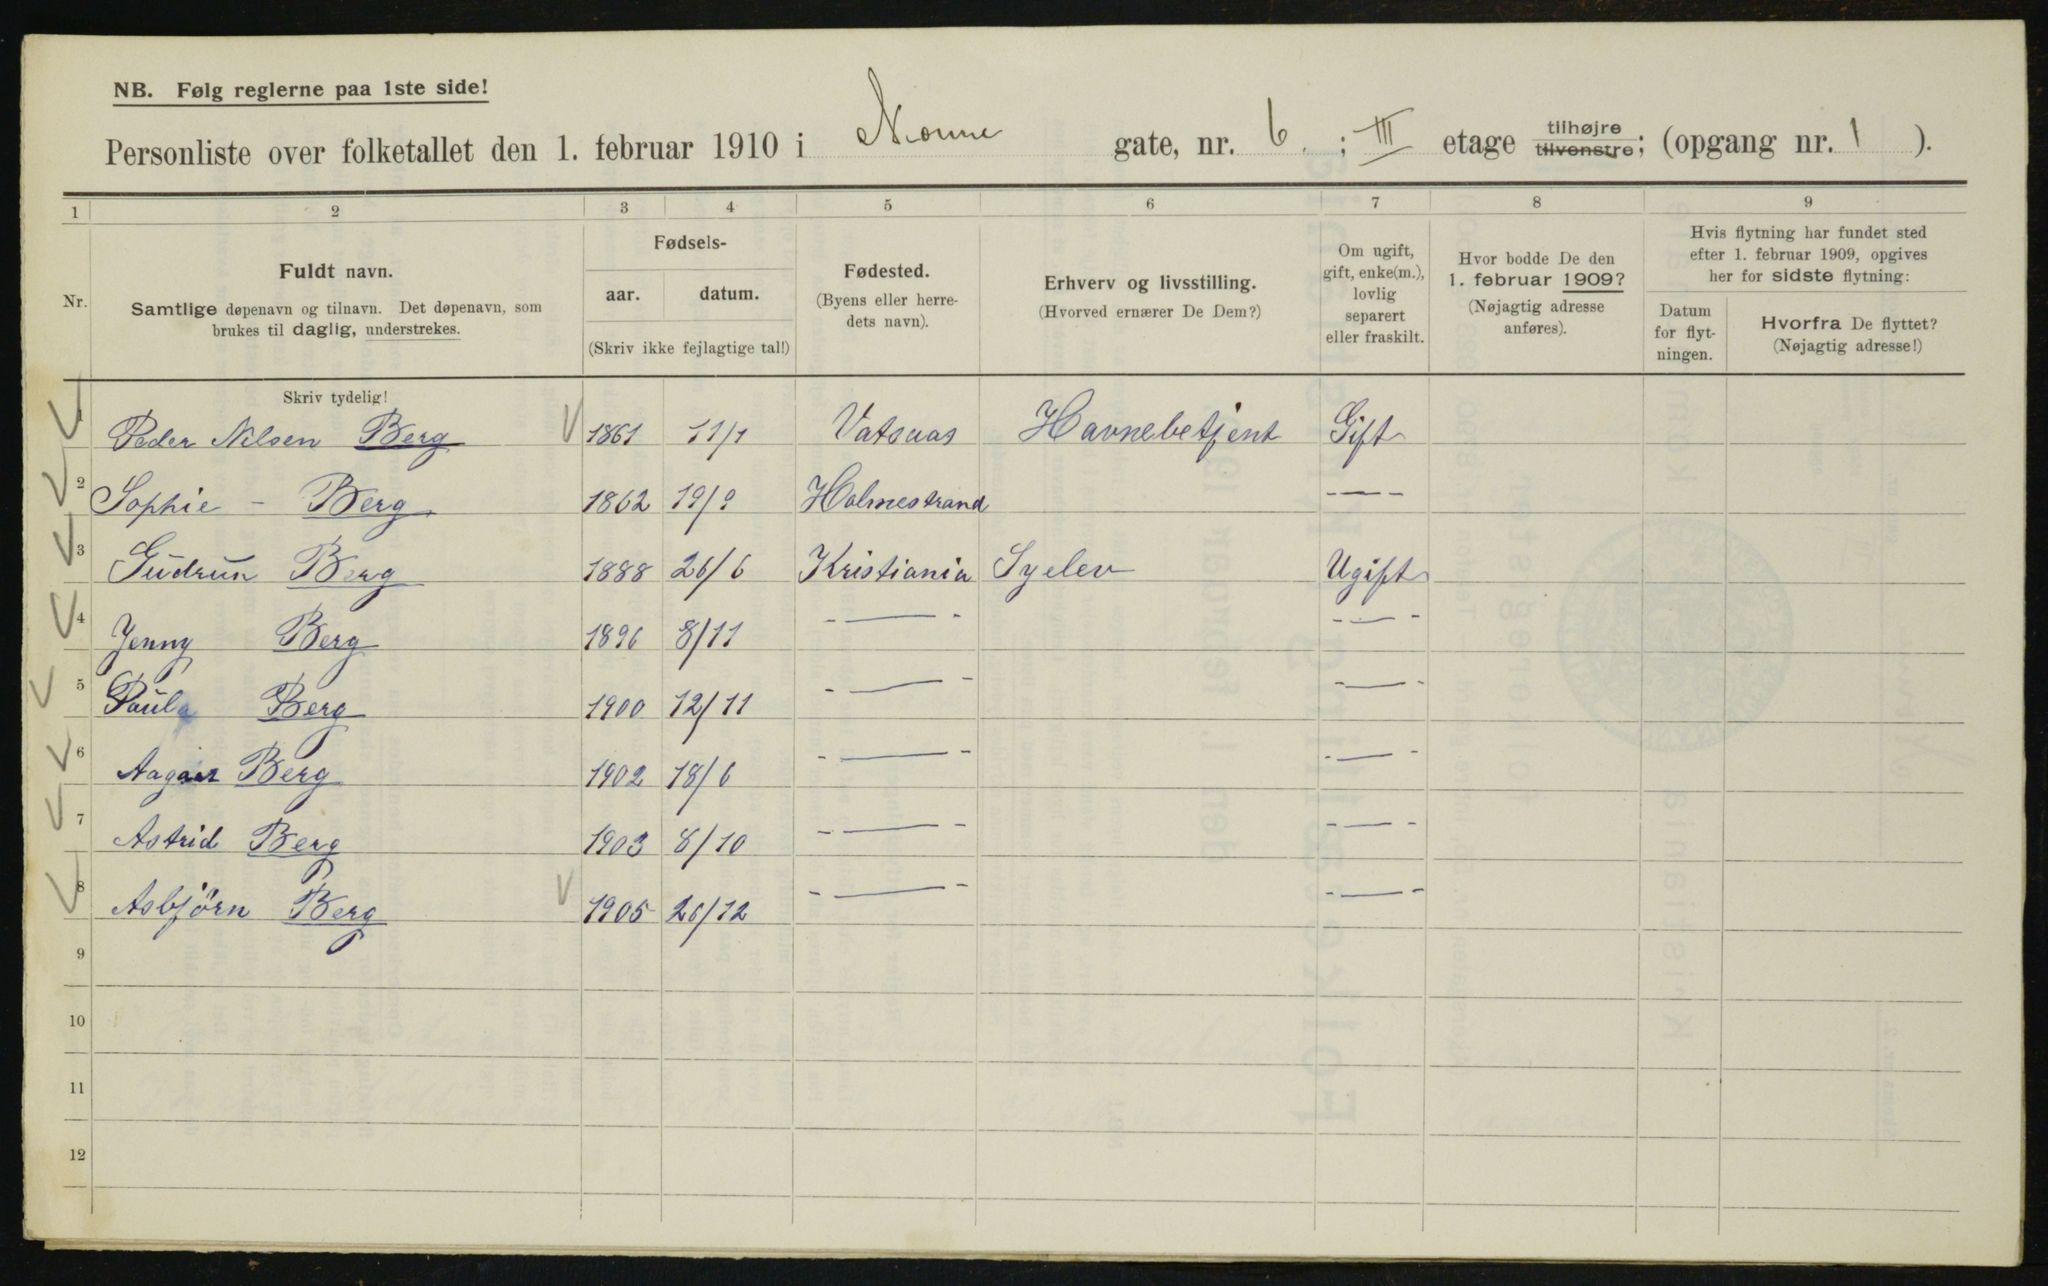 NB. Følg reglerne paa 1ste side!
Personliste over folketallet den 1. februar 1910 i Nonne gate, nr. 6. ; III etage tilhøjre tilvenstre; (opgang nr. 1 ).
1 2 3 4 5 6 7 8 9
Nr.
Fuldt navn.
Samtlige døpenavn og tilnavn. Det døpenavn, som
brukes til daglig, understrekes.
Skriv tydelig!
Fødsels-
aar. datum.
(Skriv ikke fejlagtige tal!)
Fødested.
(Byens eller herre-
dets navn).
Erhverv og livsstilling.
(Hvorved ernærer De Dem?)
Om ugift,
gift, enke(m.),
lovlig
separert
eller fraskilt.
Hvor bodde De den
1. februar 1909?
(Nøjagtig adresse
anføres).
Hvis flytning har fundet sted
efter 1. februar 1909, opgives
her for sidste flytning:
Datum
for flyt-
ningen.
Hvorfra De flyttet?
(Nøjagtig adresse!)
1 Peder Nilsen Berg 1861 11/1 Vatsaas Havnebetjent Gift
2 Sophie - Berg 1862 19/9 Holmestrand - — -
3 Gudrun Berg 1888 26/6 Kristiania Syelev Ugift
4 Jenny Berg 1896 8/11 - — - - — -
5 Paula Berg 1900 12/11 - — - - — -
6 Berg 1902 18/6 - — - - — -
7 Astrid Berg 1903 8/10 - — - - — -
8 Asbjörn Berg 1905 26/12 - — - - — -
9
10
11
12